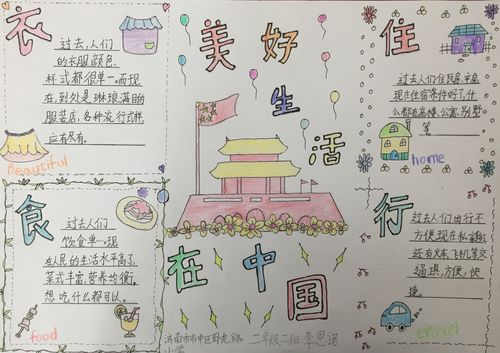 衣
过去,人们
的衣服颜色、
样式都很单一。而现
在,到处是琳琅满目的
服装店,各种流行式样
应有尽有。
Beautiful
美好
生
活
在
中
国
住
过去人们住瓦房、
现在住宿条件好了,什
么都有高楼、公寓、别墅
等
home
食
过去人们
饮食单一。现
在人民的生活水平高了,
菜式丰富,营养均衡,
想吃什么都可以。
food
行
过去人们出行不
方便,现在私家
还有火车、飞机等交
通,方便,快
捷。
travel
济南市市中区卧龙路
小学
二年级二班 李思诺